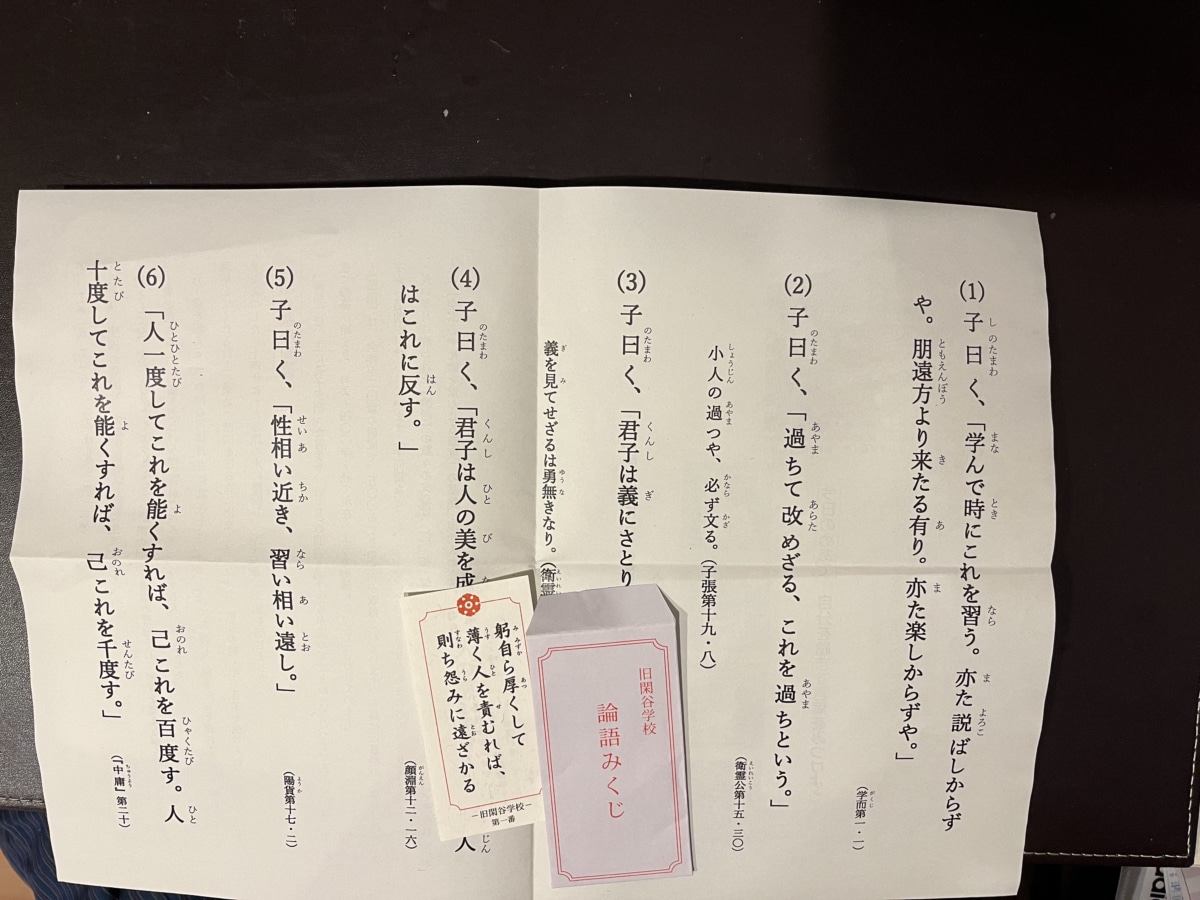 (1) 子曰く、「学んで時にこれを習う。亦た説ばしからず
や。朋遠方より来たる有り。亦た楽しからずや。」
(学而第一・一)
(2) 子曰く、「過ちて改めざる、これを過ちという。」
(衛霊公第十五・三〇)
小人の過つや、必ず文る。(子張第十九・八)
(3) 子曰く、「君子は義にさとり
義を見てせざるは勇無きなり。(衛霊
(4) 子曰く、「君子は人の美を成
人
はこれに反す。」
(顔淵第十二・一六)
(5) 子曰く、「性相い近き、習い相い遠し。」
(陽貨第十七・二)
(6) 「人一度してこれを能くすれば、己これを百度す。人
十度してこれを能くすれば、己これを千度す。」
(『中庸』第二十)
旧閑谷学校
論語みくじ
躬自ら厚くして
薄く人を責むれば、
則ち怨みに遠ざかる
-旧閑谷学校-
第一番